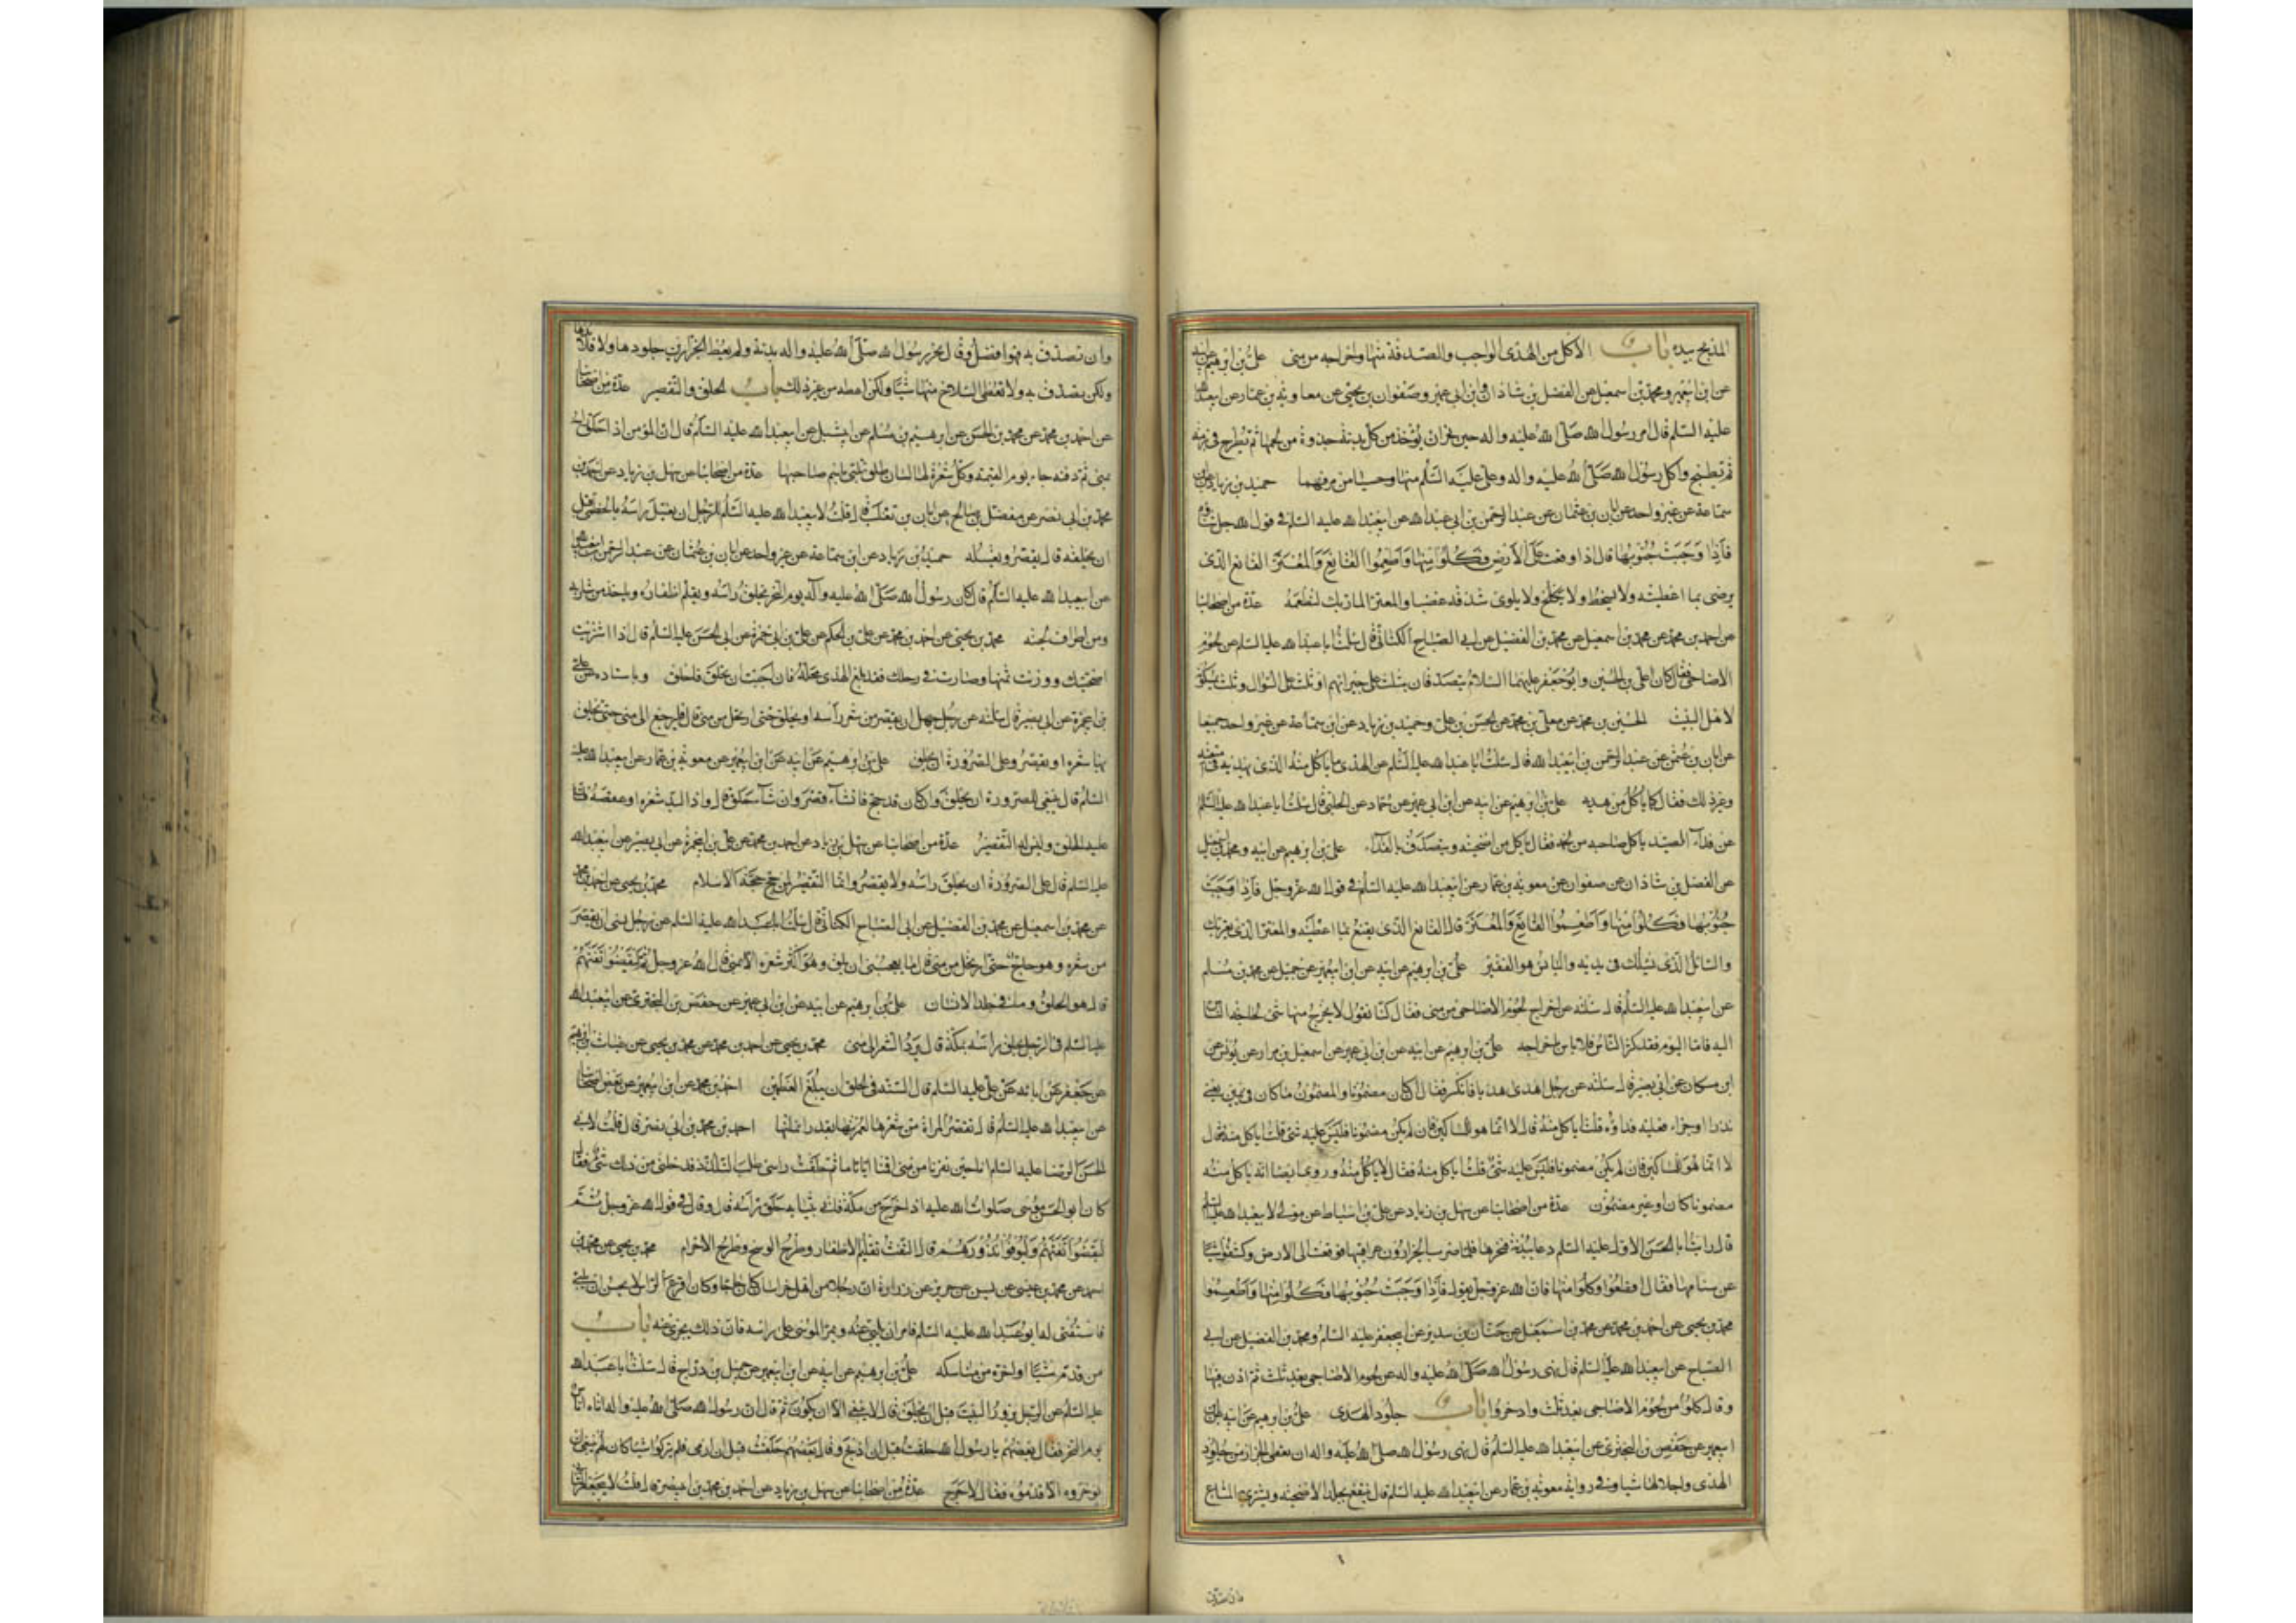 المذبح بيده باب الأكل من الهدى الواجب والصدقة منها واخراجه من منى علي بن ابرهيم عن ابيه
عن ابن ابيعمير ومحمد بن اسمعيل عن الفضل بن شاذان عن ابن ابي عمير وصفوان بن يحيى عن معاوية بن عمار عن ابيعبدالله
عليه السلم قال امر رسول الله صلى الله عليه واله حين نحر ان يؤخذ من كل بدنة جذوة من لحمها ثم تطرح في برمة
ثم تطبخ واكل رسول الله صلى الله عليه واله وعلي عليه السلم منها وحسيا من مرقهما حميد بن زياد عن ابن
سماعة عن غير واحد عن ابان بن عثمان عن عبد الرحمن بن ابي عبدالله عن ابيعبدالله عليه السلم في قول الله جل ثناؤه
فاذا وجبت جنوبها قال اذا وقعت على الارض فكلوا منها واطعموا القانع والمعتر القانع الذى
يرضى بما اعطيته ولا يسخط ولا يكلح ولا يلوى شدقه غضبا والمعتر المار بك لتطعمه عدة من اصحابنا
عن احمد بن محمد عن محمد بن اسمعيل عن محمد بن الفضيل عن ابي الصباح الكناني قال سئلت ابا عبدالله عليه السلم عن لحوم
الاضاحى فقال كان علي بن الحسين وابو جعفر عليهما السلام يتصدقان بثلث على جيرانهم وثلث على السؤال وثلث يمسكونه
لاهل البيت الحسين بن محمد عن معلى بن محمد عن الحسن بن علي وحميد بن زياد عن ابن سماعة عن غير واحد جميعا
عن ابان بن عثمن عن عبد الرحمن بن ابيعبدالله قال سئلت ابا عبدالله عليه السلم عن الهدى ما ياكل منه الذى يهديه في متعته
وغير ذلك فقال كما ياكل من هديه علي بن ابرهيم عن ابيه عن ابن ابي عمير عن حماد عن الحلبي قال سئلت ابا عبدالله عليه السلم
عن فداء الصيد ياكل صاحبه من لحمه فقال ياكل من اضحيته ويتصدق بالفداء علي بن ابرهيم عن ابيه ومحمد بن اسمعيل
عن الفضل بن شاذان عن صفوان عن معوية بن عمار عن ابيعبدالله عليه السلم في قول الله عز وجل فاذا وجبت
جنوبها فكلوا منها واطعموا القانع والمعتر قال القانع الذى يقنع بما اعطيته والمعتر الذى يعتريك
والسائل الذى يسئلك في يديه والبائس هو الفقير علي بن ابرهيم عن ابيه عن ابن ابيعمير عن جميل عن محمد بن مسلم
عن ابيعبدالله عليه السلم قال سئلته عن اخراج لحوم الاضاحى من منى فقال كنا نقول لا يخرج منها شئ لحاجة الناس
اليه فاما اليوم فقد كثر الناس فلا باس باخراجه علي بن ابرهيم عن ابيه عن ابن ابي عمير عن اسمعيل بن مرار عن يونس عن
ابن مسكان عن ابي بصير قال سئلته عن رجل اهدى هديا فانكسر فقال ان كان مضمونا والمضمون ما كان في يمين يعني
نذرا او جزاء فعليه فداؤه قلت ياكل منه قال لا انما هو للمساكين فان لم يكن مضمونا فليس عليه شئ قلت اياكل منه قال
لا انما هو للمساكين فان لم يكن مضمونا فليس عليه شئ قلت اياكل منه فقال لا ياكل منه وروى ايضا انه ياكل منه
مضمونا كان او غير مضمون عدة من اصحابنا عن سهل بن زياد عن علي بن اسباط عن مولى لابيعبدالله عليه السلم
قال رايت ابا الحسن الاول عليه السلم دعا ببدنة فنحرها فلما ضرب الجزارون عراقيبها فوقعت الى الارض وكشفوا شيئا
عن سنامها فقال اقطعوا وكلوا منها فان الله عز وجل يقول فاذا وجبت جنوبها فكلوا منها واطعموا
محمد بن يحيى عن احمد بن محمد عن محمد بن اسمعيل عن حنان بن سدير عن ابيجعفر عليه السلم ومحمد بن الفضيل عن ابي
الصباح عن ابيعبدالله عليه السلم قال نهى رسول الله صلى الله عليه واله عن لحوم الاضاحى بعد ثلث ثم اذن فيها
وقال كلوا من لحوم الاضاحى بعد ثلث وادخروا باب جلود الهدى علي بن ابرهيم عن ابيه عن ابن
ابيعمير عن حفص بن البخترى عن ابيعبدالله عليه السلم قال نهى رسول الله صلى الله عليه واله ان يعطى الجزار من جلود
الهدى واجلالها شيئا وفي رواية معوية بن عمار عن ابيعبدالله عليه السلم قال ينتفع بجلد الاضحية ويشترى به المتاع
وان تصدق به فهو افضل وقال نحر رسول الله صلى الله عليه واله بدنة ولم يعط الجزارين جلودها ولا قلائدها
ولكن يصدق به ولا تعط السلاخ منها شيئا ولكن اعطه من غير ذلك باب الحلق والتقصير عدة من اصحابنا
عن احمد بن محمد عن محمد بن الحسن عن ابرهيم بن مسلم عن ابي شبل عن ابيعبدالله عليه السلام قال ان المؤمن اذا حلق راسه
بمنى ثم دفنه جاء يوم القيمة وكل شعرة لها لسان طلق تلبى باسم صاحبها عدة من اصحابنا عن سهل بن زياد عن احمد بن
محمد بن ابى نصر عن مفضل بن صالح عن ابان بن تغلب قال قلت لابيعبدالله عليه السلم للرجل ان يغسل راسه بالخطمى قبل
ان يحلقه قال يقصر ويغسله حميد بن زياد عن ابن سماعة عن غير واحد عن ابان بن عثمان عن عبد الرحمن بن ابيعبدالله
عن ابيعبدالله عليه السلم قال كان رسول الله صلى الله عليه وآله يوم النحر يحلق راسه ويقلم اظفاره وياخذ من شاربه
ومن اطراف لحيته محمد بن يحيى عن احمد بن محمد عن علي بن الحكم عن علي بن ابي حمزة عن ابي الحسن عليه السلم قال اذا اشتريت
اضحيتك ووزنت ثمنها وصارت في رحلك فقد بلغ الهدى محله فان احببت ان تحلق فاحلق وباسناده عن علي
بن ابيحمزة عن ابي بصير قال سئلته عن رجل جهل ان يقصر من شعر راسه او يحلق حتى ارتحل من منى قال فليرجع الى منى حتى يحلق
بها شعره او يقصر وعلى الصرورة ان يحلق علي بن ابرهيم عن ابيه عن ابن ابيعمير عن معوية بن عمار عن ابيعبدالله عليه
السلم قال ينبغى للصرورة ان يحلق وان كان قد حج فان شاء قصر وان شاء حلق قال واذا لبد شعره او عقصه فان
عليه الحلق وليس له التقصير عدة من اصحابنا عن سهل بن زياد عن احمد بن محمد عن علي بن ابيحمزة عن ابي بصير عن ابيعبدالله
عليه السلم قال على الصرورة ان يحلق راسه ولا يقصر وانما التقصير لمن حج حجة الاسلام محمد بن يحيى عن احمد بن محمد
عن محمد بن اسمعيل عن محمد بن الفضيل عن ابي الصباح الكناني قال سئلت ابا عبدالله عليه السلم عن رجل نسى ان يقصر
من شعره وهو حاج حتى ارتحل من منى قال ما يعجبنى ان يلقى شعره الا بمنى قال الله عز وجل ثم ليقضوا تفثهم
قال هو الحلق وما في جلد الانسان علي بن ابرهيم عن ابيه عن ابن ابي عمير عن حفص بن البخترى عن ابيعبدالله
عليه السلم في الرجل يحلق راسه بمكة قال يرد الشعر الى منى محمد بن يحيى عن احمد بن محمد عن محمد بن يحيى عن غياث بن ابرهيم
عن جعفر عن ابائه عن علي عليه السلم قال السنة في الحلق ان يبلغ العظمين احمد بن محمد عن ابن ابيعمير عن بعض اصحابنا
عن ابيعبدالله عليه السلم قال تقصر المراة من شعرها لعمرتها بقدر انملتها احمد بن محمد بن ابي نصر قال قلت لابي
الحسن الرضا عليه السلم انا حين نفرنا من منى اقمنا اياما ثم حلقت راسى طلب التلذذ فدخلنى من ذلك شئ فقال
كان ابو الحسن موسى صلوات الله عليه اذا خرج من مكة فاتى بثيابه حلق راسه قال وقال في قول الله عز وجل ثم
ليقضوا تفثهم وليوفوا نذورهم قال التفث تقليم الاظفار وطرح الوسخ وطرح الاحرام محمد بن يحيى عن محمد بن
احمد عن محمد بن عيسى عن يس عن حريز عن زرارة ان رجلا من اهل خراسان كان حاجا وكان اقرع الراس لا يحسن ان يلبى
فاستفتى له ابو عبدالله عليه السلم فامر ان يلبى عنه ويمر الموسى على راسه فان ذلك يجزى عنه باب
من قدم شيئا او اخره من مناسكه علي بن ابرهيم عن ابيه عن ابن ابيعمير عن جميل بن دراج قال سئلت ابا عبدالله
عليه السلم عن الرجل يزور البيت قبل ان يحلق قال لا ينبغى الا ان يكون ثم قال ان رسول الله صلى الله عليه واله اتاه اناس
يوم النحر فقال بعضهم يا رسول الله حلقت قبل ان اذبح وقال بعضهم حلقت قبل ان ارمى فلم يتركوا شيئا كان لهم ينبغى ان
يؤخروه الا قدموه فقال لا حرج عدة من اصحابنا عن سهل بن زياد عن احمد بن محمد بن ابي نصر قال قلت لابيجعفر الثاني